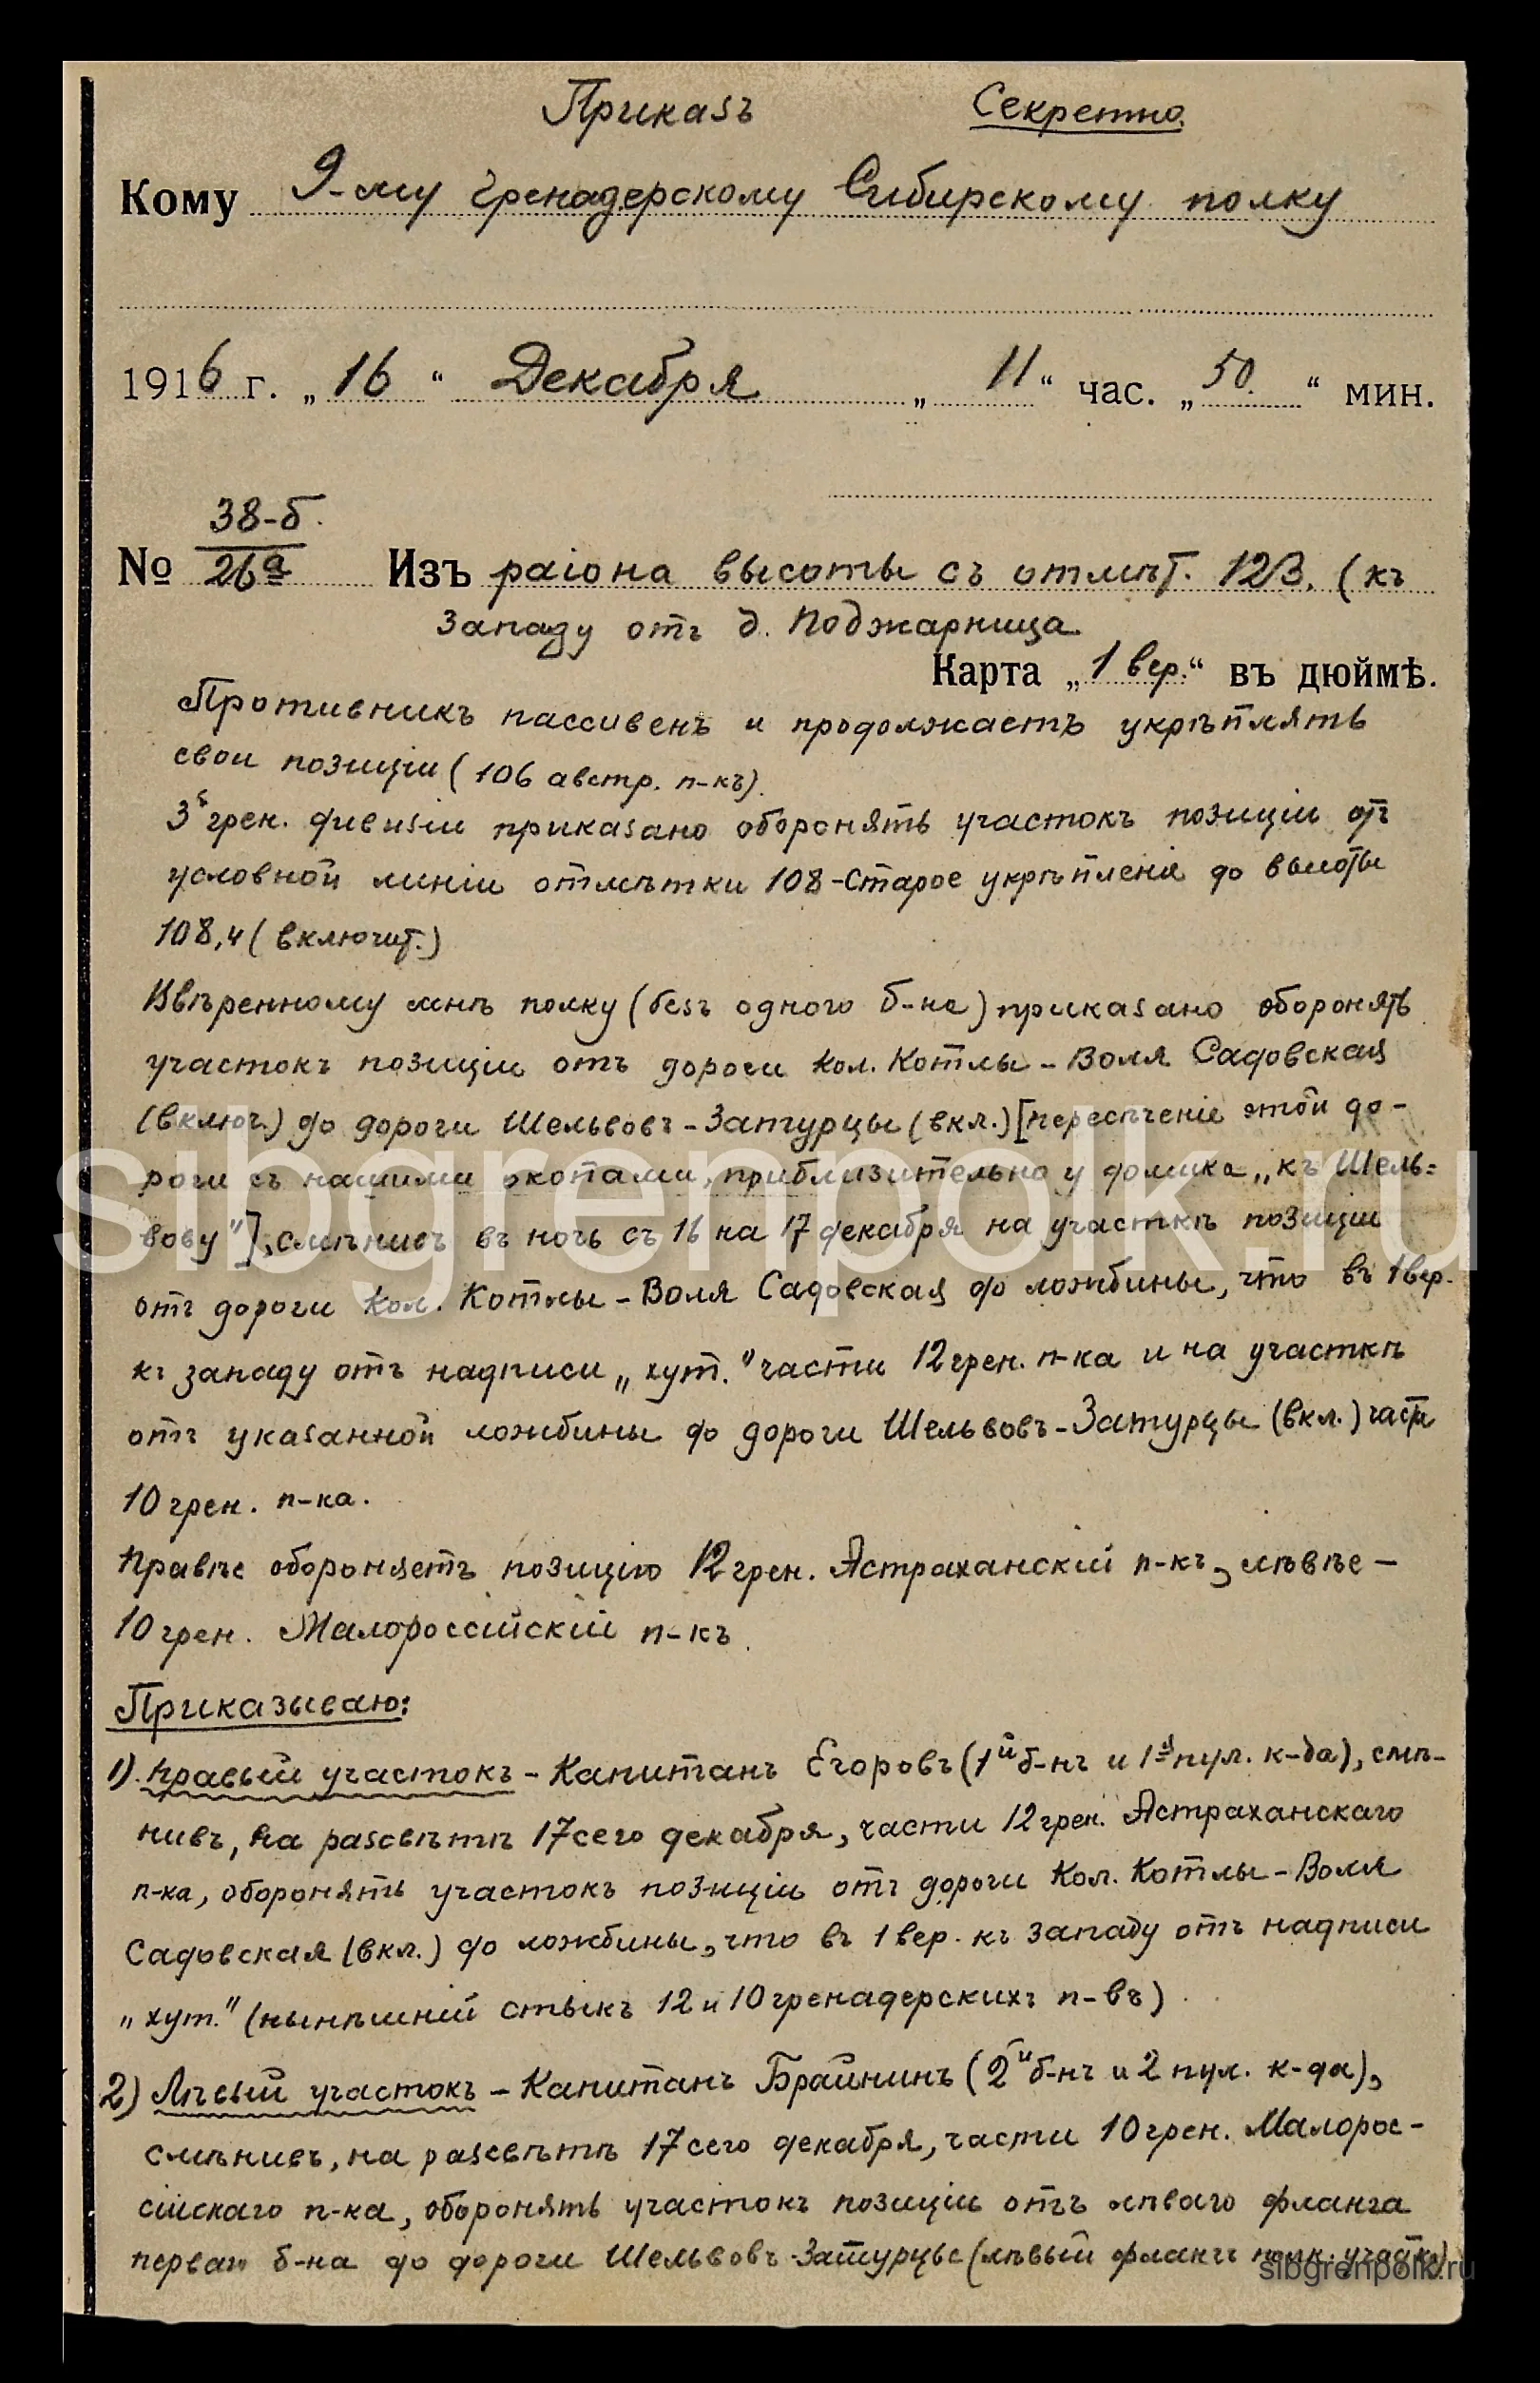 Приказъ Секретно.
Кому 9-му Гренадерскому Сибирскому полку
1916 г. „16“ Декабря „11“ час. „50.“ мин.
38-б.
№ 26а Изъ раіона высоты съ отмѣт. 123. (къ
западу отъ д. Поджарница.
Карта „1 вер.“ въ дюймѣ.
Противникъ пассивенъ и продолжаетъ укрѣплять
свои позиціи (106 австр. п-къ).
3й грен. дивизіи приказано оборонять участокъ позиціи отъ
условной линіи отмѣтки 108-Старое укрѣпленіе до высоты
108,4 (включит.)
Ввѣренному мнѣ полку (безъ одного б-на) приказано оборонять
участокъ позиціи отъ дороги Кол. Котлы - Воля Садовская
(включ.) до дороги Шельвовъ - Затурцы (вкл.) [пересѣченіе этой до-
роги съ нашими окопами, приблизительно у домика „къ Шель=
вову"], смѣнивъ въ ночь съ 16 на 17 декабря на участкѣ позиціи
отъ дороги Кол. Котлы - Воля Садовская до ложбины, что въ 1 вер.
къ западу отъ надписи „хут." части 12 грен. п-ка и на участкѣ
отъ указанной ложбины до дороги Шельвовъ - Затурцы (вкл.) части
10 грен. п-ка.
Правѣе обороняетъ позицію 12 грен. Астраханскій п-къ, лѣвѣе -
10 грен. Малороссійскій п-къ.
Приказываю:
1). Правый участокъ - Капитанъ Егоровъ (1й б-нъ и 1я пул. к-да), смѣ-
нивъ, на разсвѣтѣ 17 сего декабря, части 12 грен. Астраханскаго
п-ка, оборонять участокъ позиціи отъ дороги Кол. Котлы - Воля
Садовская (вкл.) до ложбины, что въ 1 вер. къ западу отъ надписи
„хут." (нынѣшній стыкъ 12 и 10 гренадерскихъ п-въ).
2) Лѣвый участокъ - Капитанъ Брайнинъ (2й б-нъ и 2 пул. к-да),
смѣнивъ, на разсвѣтѣ 17 сего декабря, части 10 грен. Малорос-
сійскаго п-ка, оборонять участокъ позиціи отъ лѣваго фланга
перваго б-на до дороги Шельвовъ - Затурцы (лѣвый флангъ полк. участка)
sibgrenpolk.ru
sibgrenpolk.ru